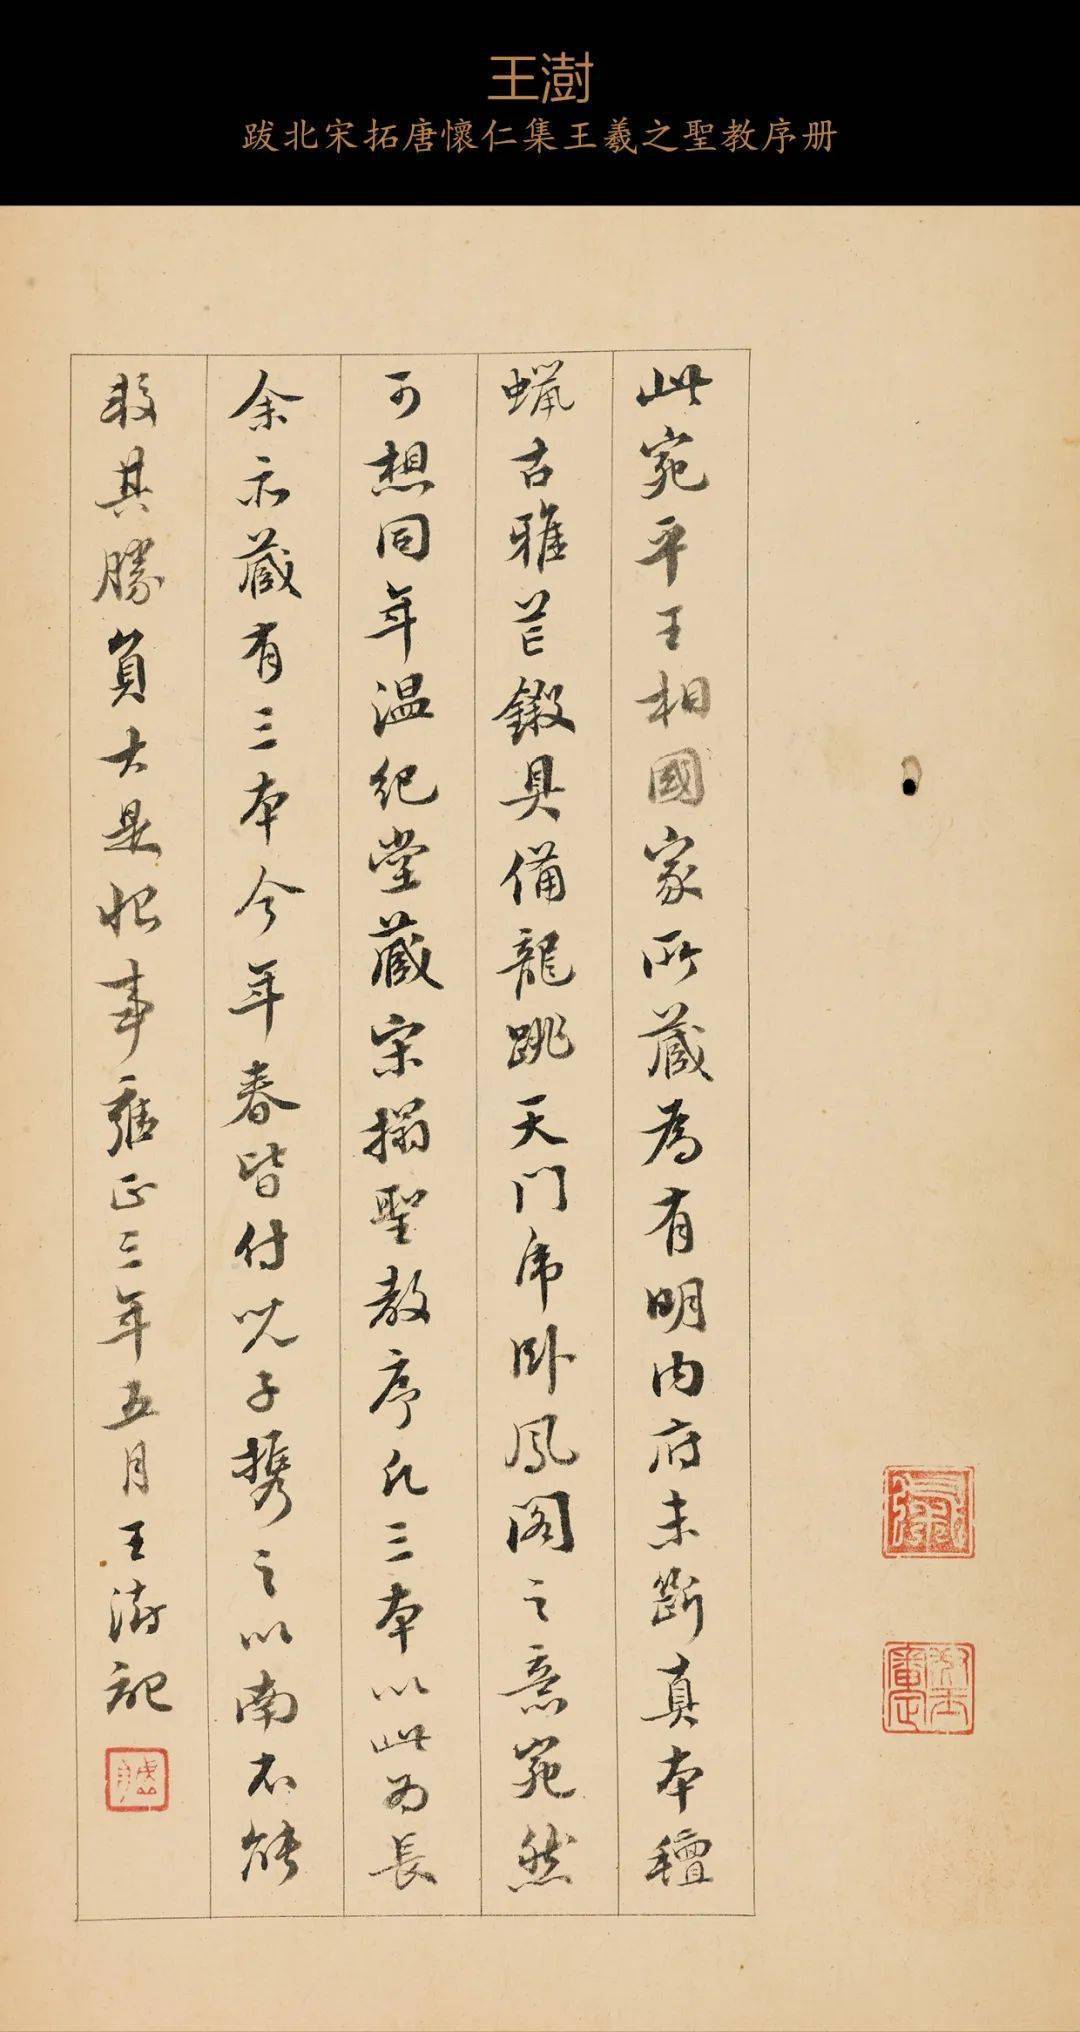 王澍
跋北宋拓唐懷仁集王羲之聖教序册
此宛平王相國家所藏為有明内府未斷真本氊
蠟古雅芒鎩具備龍跳天門虎卧鳳閣之意宛然
可想同年温紀堂藏宋搨聖教序凡三本以此為長
余亦藏有三本今年春皆付兒子携之以南不能
挍其勝負大是恨事雍正三年五月王澍記